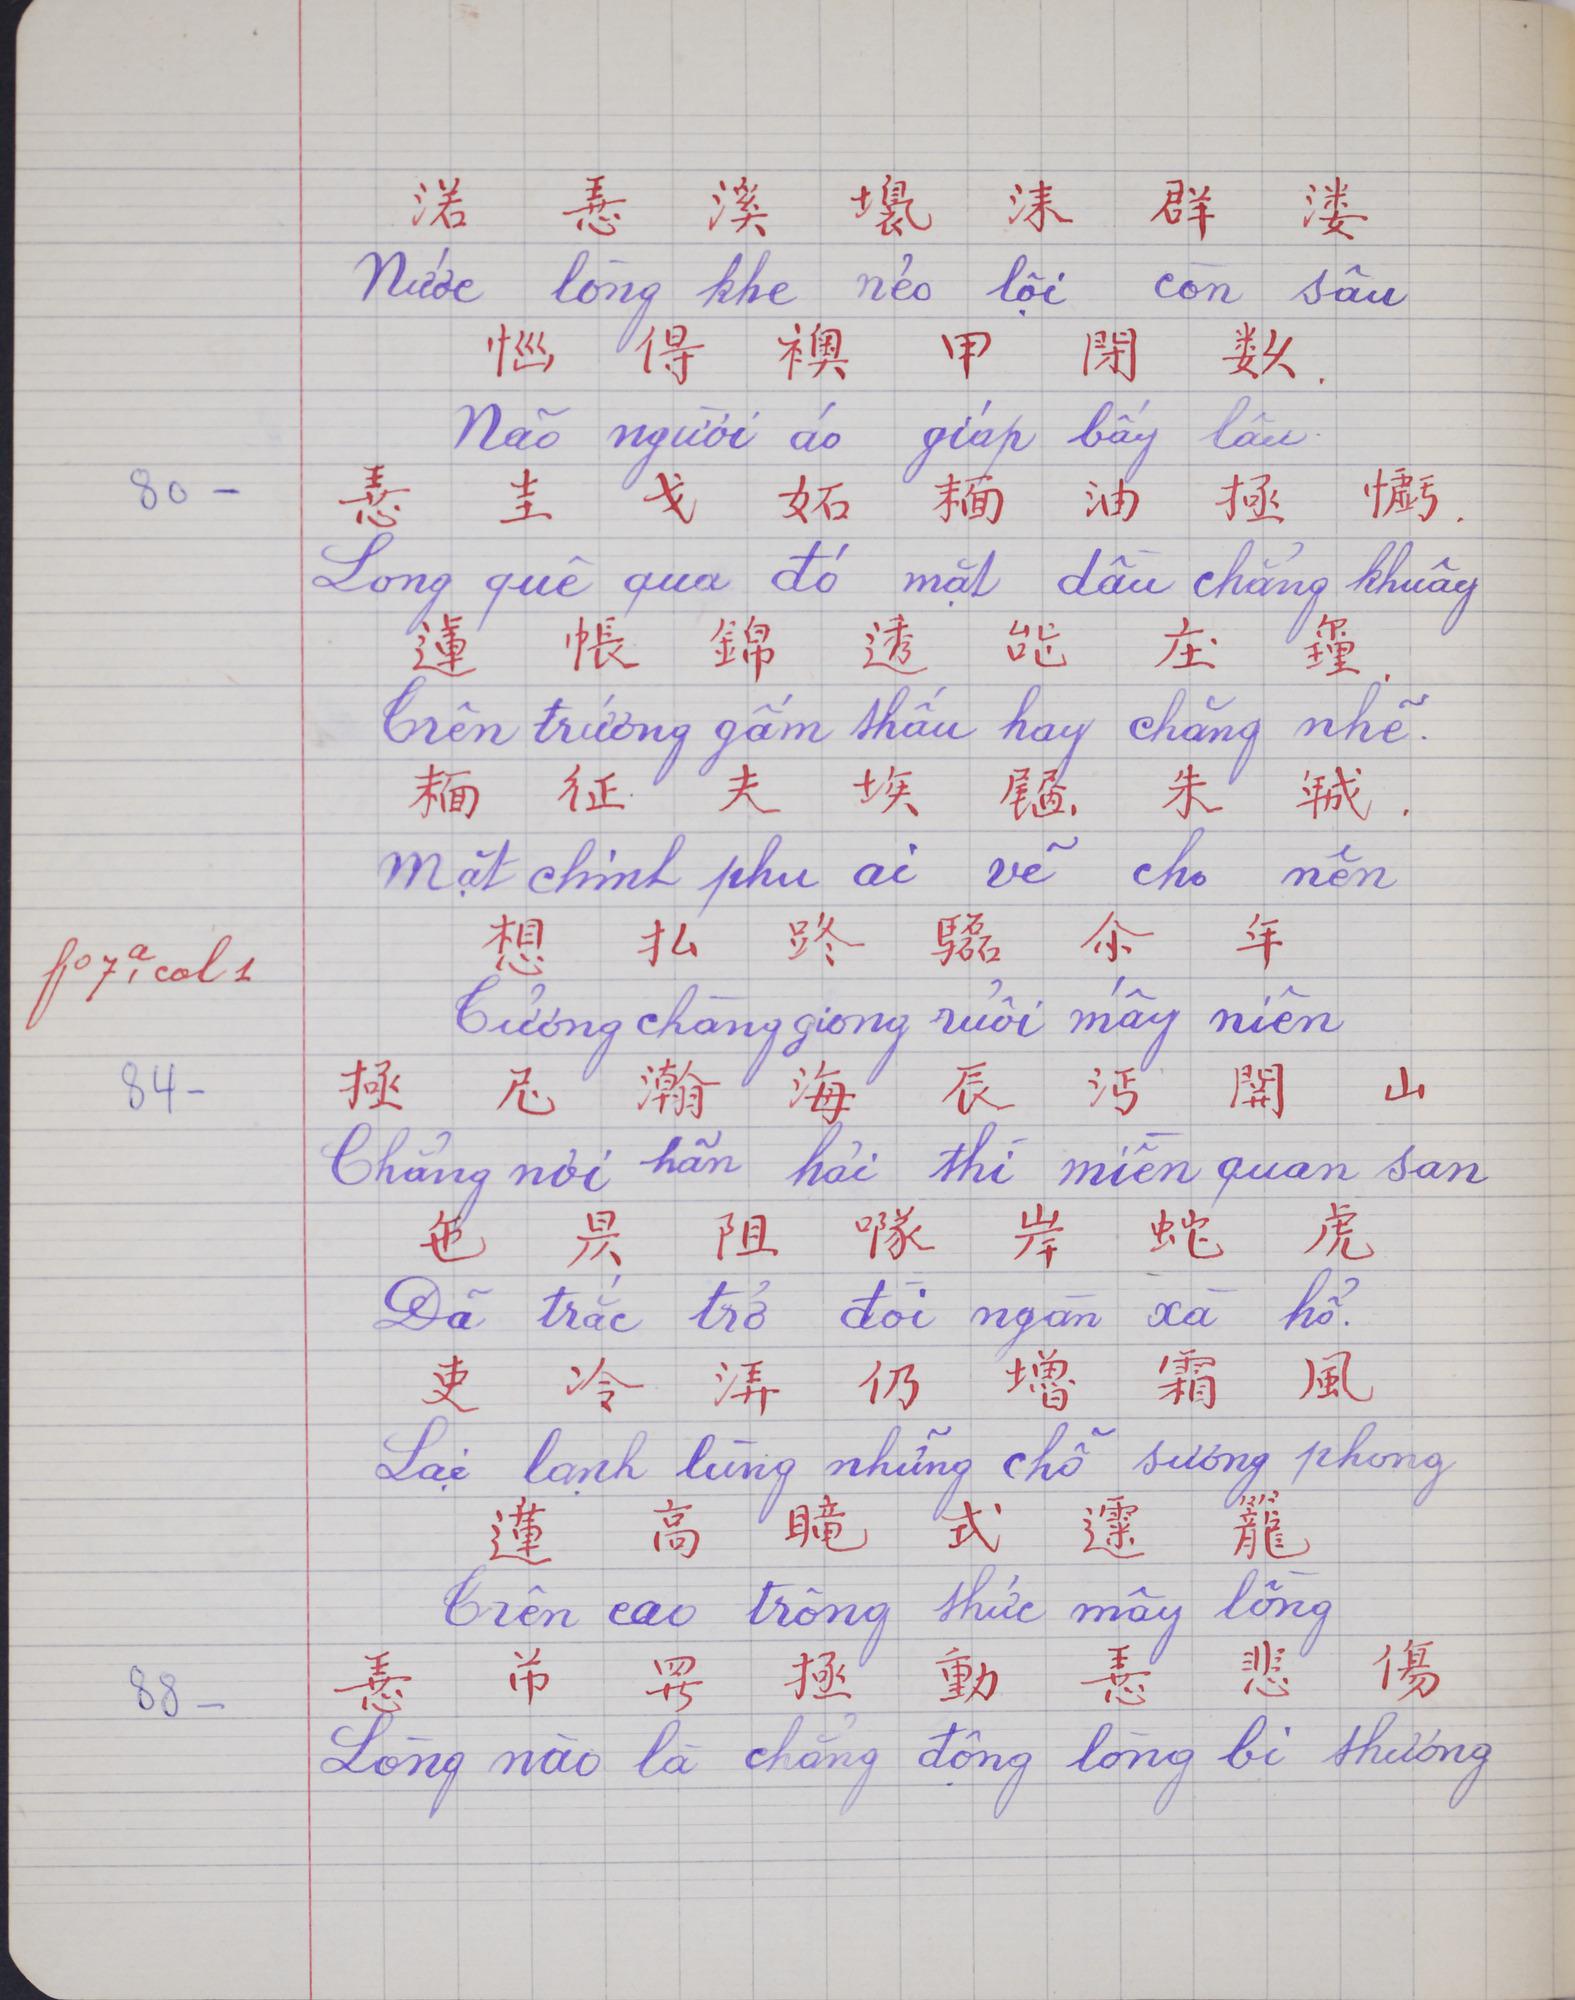 渃 𢚸 溪 壞 洡 群 溇
Nước lòng khe nẻo lội còn sâu
惱 得 襖 甲 閉 数.
Não người áo giáp bấy lâu.
80 - 𢚸 圭 戈 妬 𩈘 油 拯 慪.
Lòng quê qua đó mặt dầu chẳng khuây
蓮 帳 錦 透 咍 庄 .
Trên trướng gấm thấu hay chăng nhẽ.
𩈘 征 夫 埃 朱 𢧚.
Mặt chinh phu ai vẽ cho nên
想 払 𨀐 余 年
fº 7ª, col 1
Tưởng chàng giong ruổi mấy niên
84 - 拯 尼 瀚 海 辰 沔 開 山
Chẳng nơi hãn hải thì miền quan san
㐌 昃 阻 㘂 岸 蛇 虎
Đã trắc trở đòi ngàn xà hổ.
吏 冷 㳥 仍 𡊲 霜 風
Lại lạnh lùng những chỗ sương phong
蓮 高 式 𩄲 籠
Trên cao trông thức mây lồng
88 - 𢚸 芇 罖 拯 動 𢚸 悲 傷
Lòng nào là chẳng động lòng bi thương